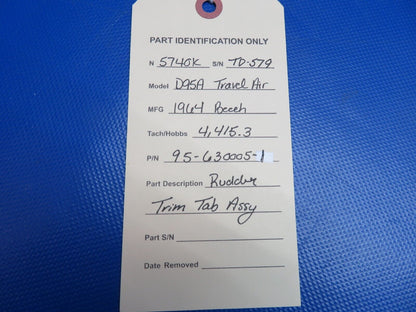 PART IDENTIFICATION ONLY
N 5740K S/N TD-579
Model D95A Travel Air
MFG 1964 Beech
Tach/Hobbs 4,415.3
P/N 95-630005-1
Part Description Rudder
Trim Tab Assy
Part S/N
Date Removed